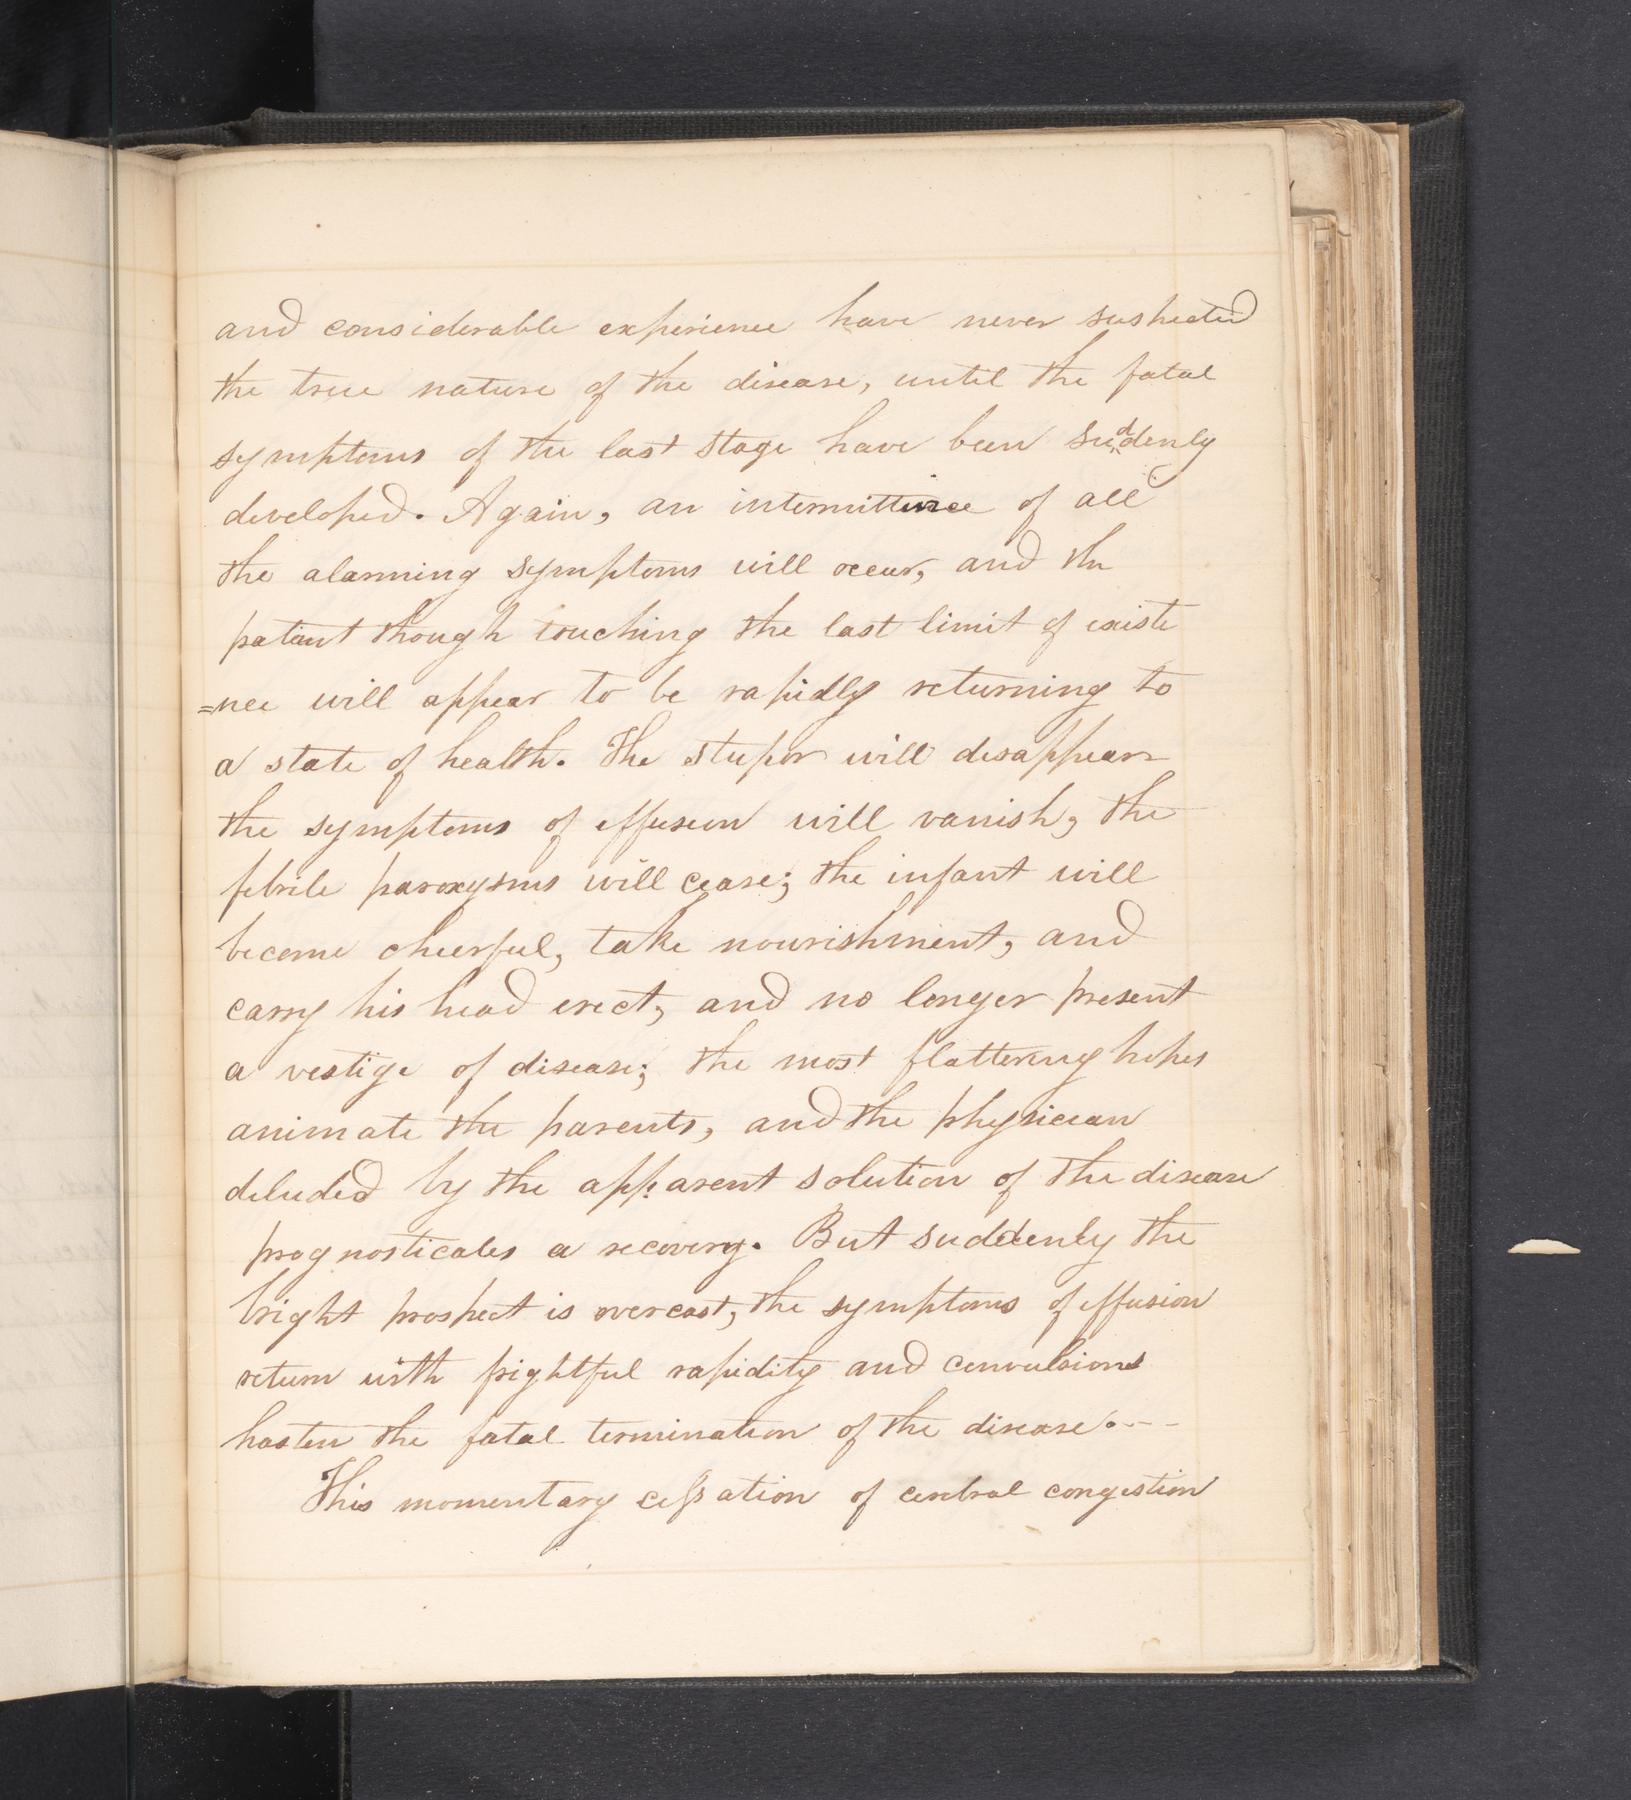 and considerable experience have never suspected
the true nature of the disease, until the fatal
symptoms of the last stage have been suddenly
developed. Again, an intermittence of all
the alarming symptoms will occur, and the
patient though touching the last limit of existe
=nce will appear to be rapidly returning to
a state of health. The stupor will disappear
the symptoms of effusion will vanish, the
febrile paroxysms will cease; the infant will
become cheerful, take nourishment, and
carry his head erect, and no longer present
a vestige of disease; the most flattering hopes
animate the parents, and the physician
deluded by the apparent solution of the disease
prognosticates a recovery. But suddenly the
bright prospect is overcast, the symptoms of effusion
return with frightful rapidity and convulsions
hasten the fatal termination of the disease.---
This momentary cessation of central congestion